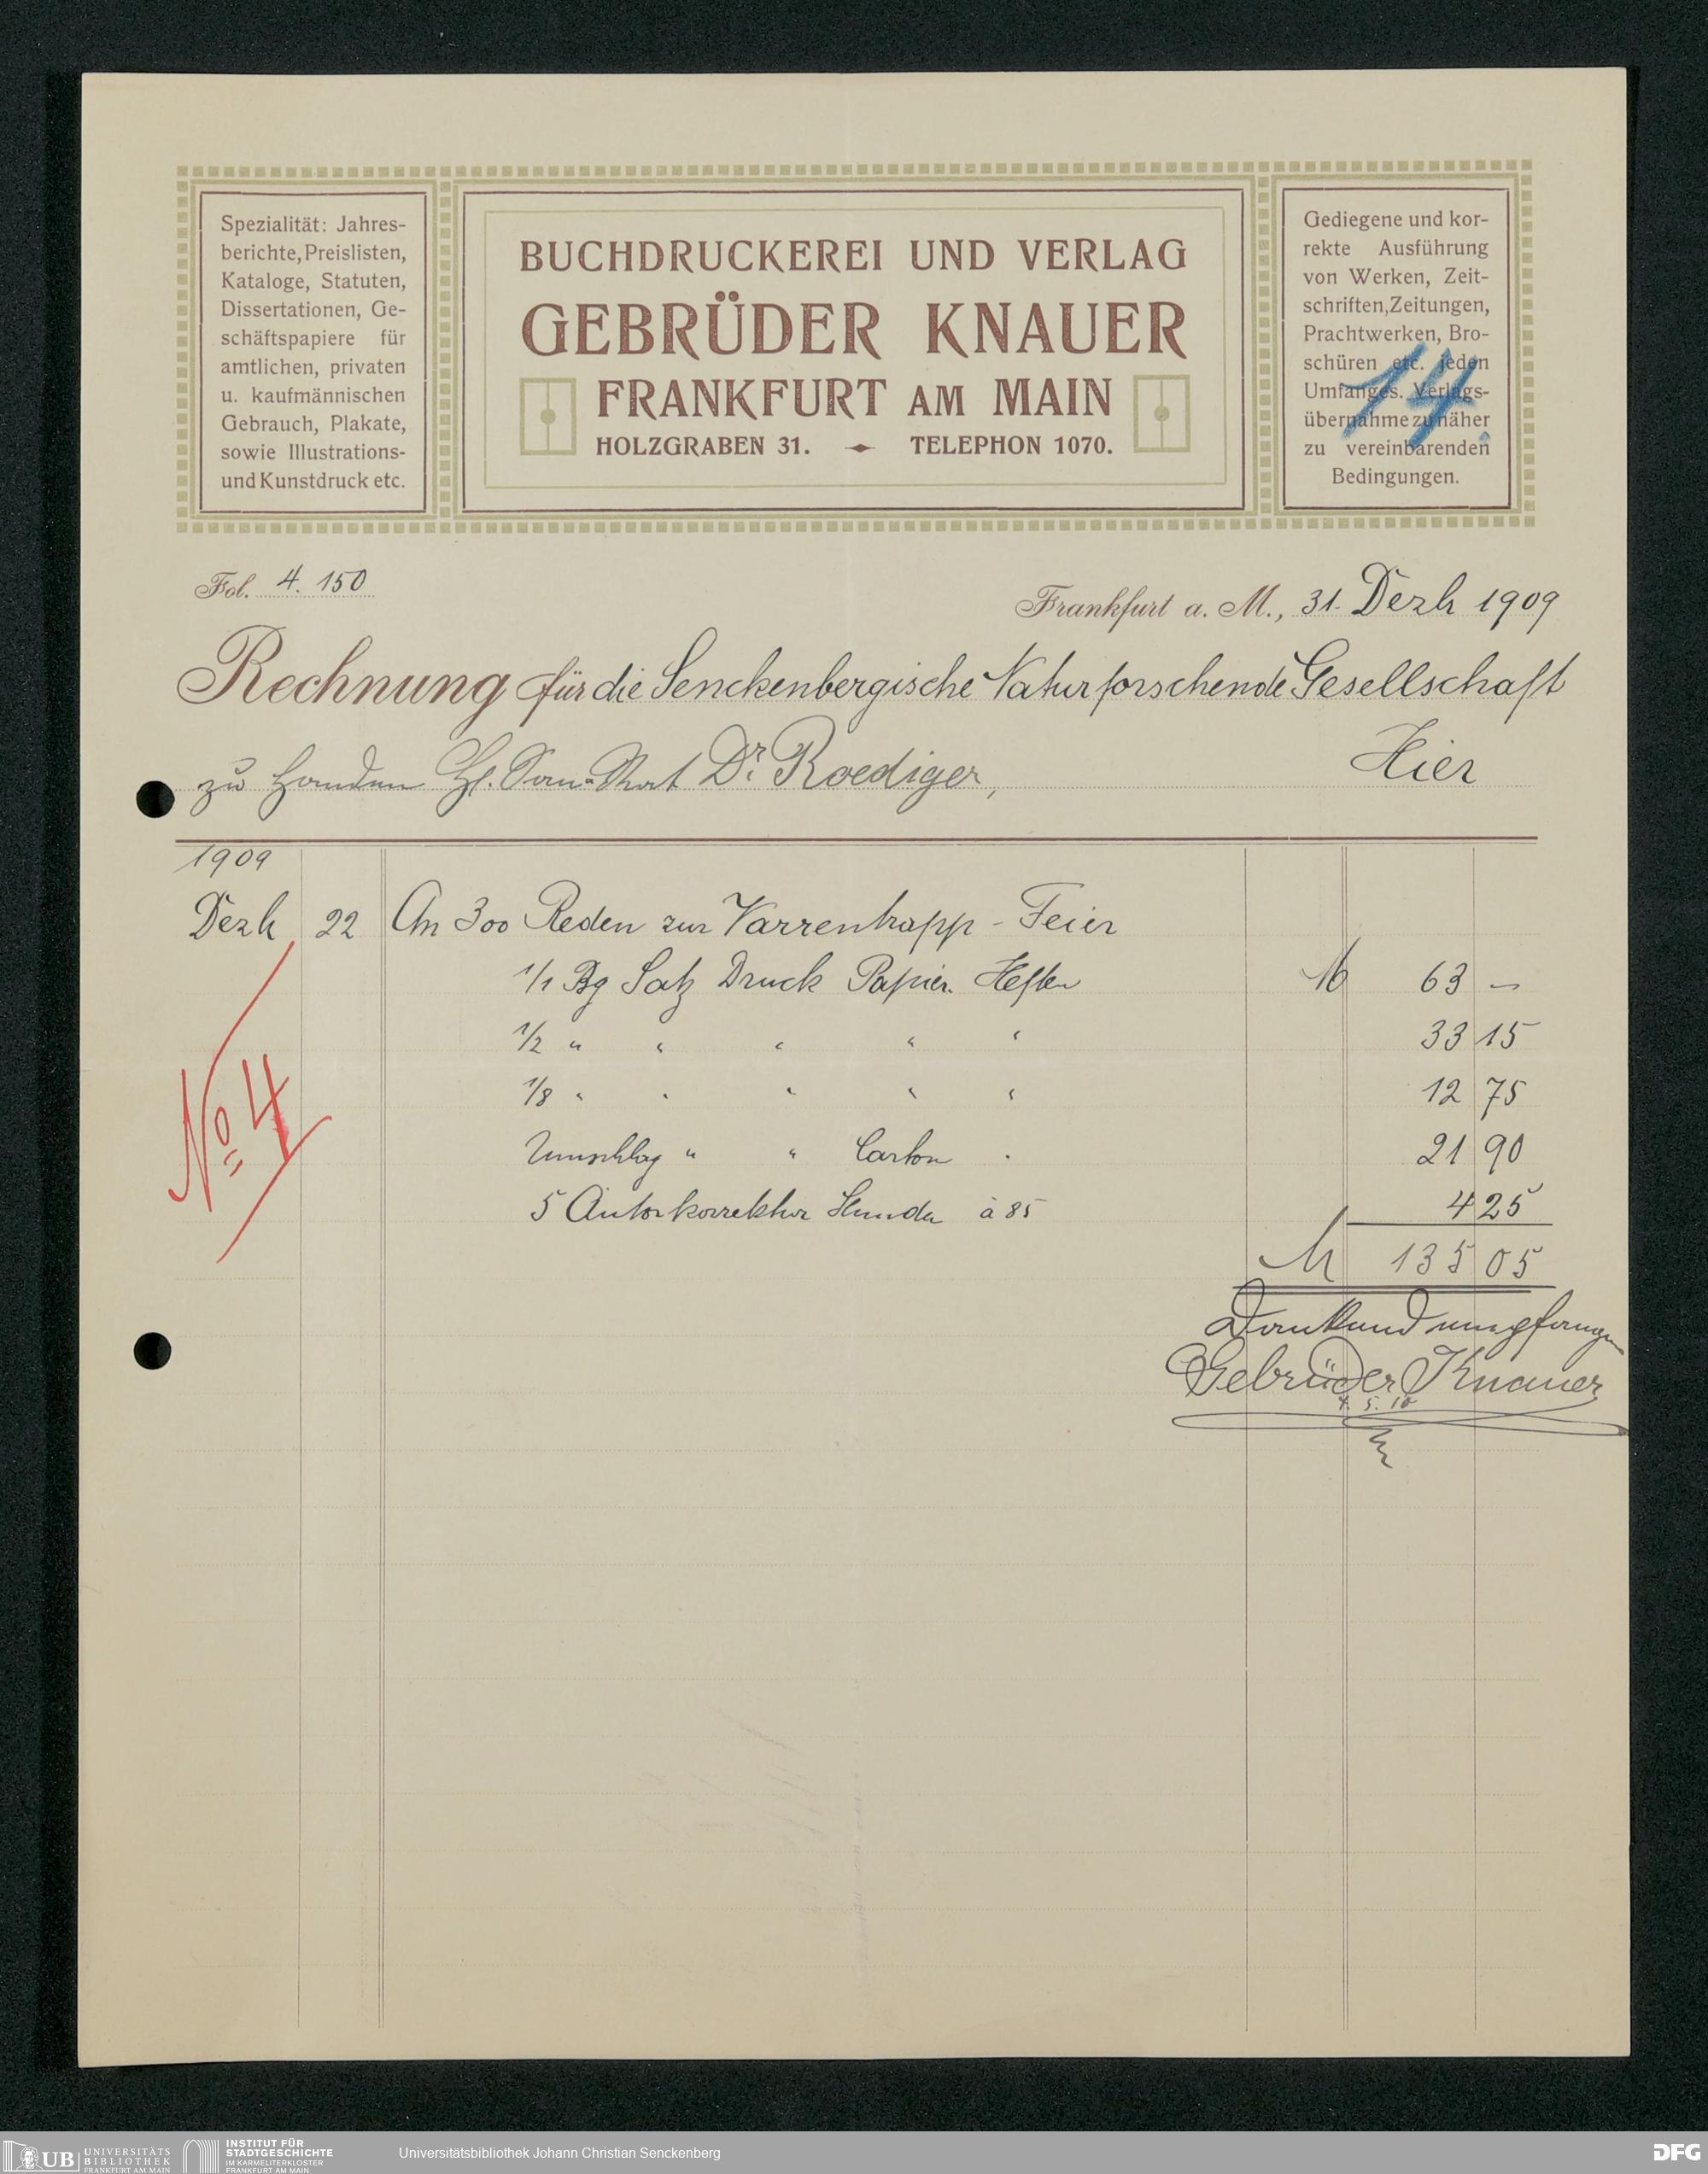 Spezialität: Jahres-
berichte, Preislisten,
Kataloge, Statuten,
Dissertationen, Ge-
schäftspapiere für
amtlichen, privaten
u. kaufmännischen
Gebrauch, Plakate,
sowie Illustrations-
und Kunstdruck etc.
BUCHDRUCKEREI UND VERLAG
GEBRÜDER KNAUER
FRANKFURT AM MAIN
HOLZGRABEN 31. TELEPHON 1070.
Gediegene und kor-
rekte Ausführung
von Werken, Zeit-
schriften, Zeitungen,
Prachtwerken, Bro-
schüren etc. jeden
Umfanges. Verlags-
übernahme zu näher
zu vereinbarenden
Bedingungen.
14.
Fol. 4. 150
Frankfurt a. M., 31. Dezb 1909
Rechnung für die Senckenbergische Naturforschende Gesellschaft
zu Handen H. San.-Rat Dr. Roediger, Hier
1909
Dezb 22 An 300 Reden zur Varrentrapp-Feier
1/1 Bg Satz Druck Papier Heften M 63 —
1/2 " " " " " 33 15
1/8 " " " " " 12 75
Umschlag " " Carton " 21 90
5 Autorkorrektur Stunden à 85 4 25
M 135 05
No 4
Dankend empfangen
Gebrüder Knauer
4. 5. 10
UB UNIVERSITÄTS
BIBLIOTHEK
FRANKFURT AM MAIN
INSTITUT FÜR
STADTGESCHICHTE
IM KARMELITERKLOSTER
FRANKFURT AM MAIN
Universitätsbibliothek Johann Christian Senckenberg
DFG